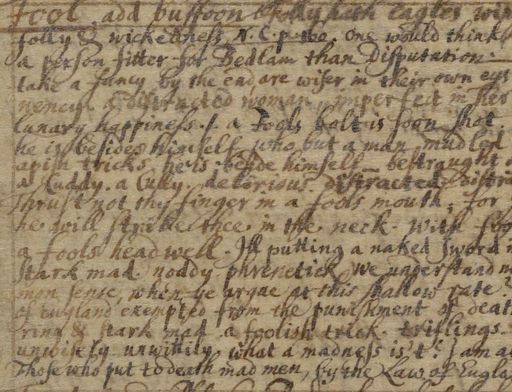 Fool. add buffoon. Folly hath eagles win
folly & wickedness, N. C. p. One would think
a person fitter for Bedlam than Disputation
take a fancy by the end are wiser in their own eys
a distracted woman, imperfect in her
lunary happiness. a Fools bolt is soon shot
he is besides himself, who but a man mudled
apish tricks. he is beside himself bestraught
a Cuddy. a Cully. delirious distracted
thrust not thy finger in a fools mouth, for
he will strike thee in the neck. with
a fools head well. Ill putting a naked sword
stark mad noddy phrenetick. We understand
mon sense, when ye argue at this shallow rate
of England exempted from the punishment of death
ring & stark mad a foolish trick. triflings.
unwisely unwittily what a madness is't? I am
Those who put to death mad men, by the Law of Engla